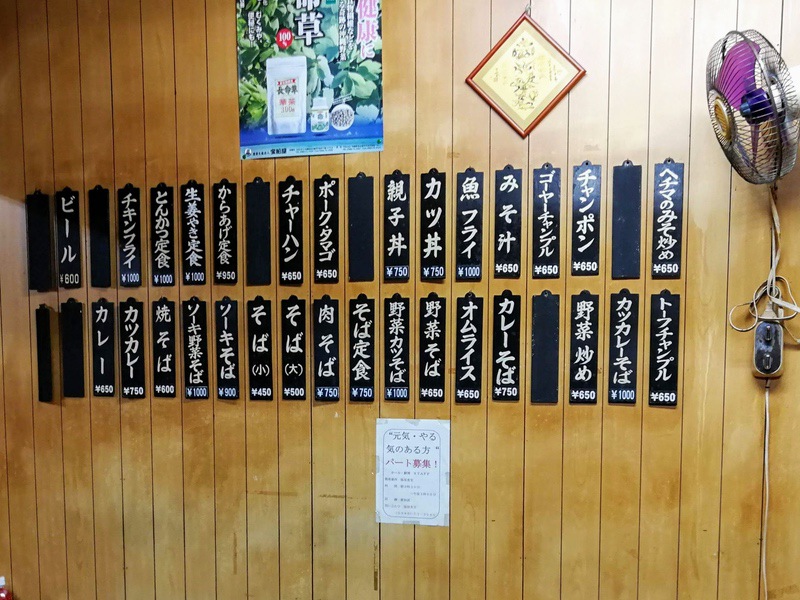 健康に
命草
100%
むくみや
長命草
ヘチマのみそ炒め ¥650
チャンポン ¥650
ゴーヤーチャンプル ¥650
みそ汁 ¥650
魚フライ ¥1000
カツ丼 ¥750
親子丼 ¥750
ポークタマゴ ¥650
チャーハン ¥650
からあげ定食 ¥950
生姜やき定食 ¥1000
とんかつ定食 ¥1000
チキンフライ ¥1000
ビール ¥600
トーフチャンプル ¥650
カツカレーそば ¥1000
野菜炒め ¥650
カレーそば ¥750
オムライス ¥650
野菜そば ¥650
野菜カツそば ¥1000
そば定食 ¥750
肉そば ¥750
そば(大) ¥500
そば(小) ¥450
ソーキそば ¥900
ソーキ野菜そば ¥1000
焼そば ¥600
カツカレー ¥750
カレー ¥650
"元気・やる
気のある方"
パート募集!